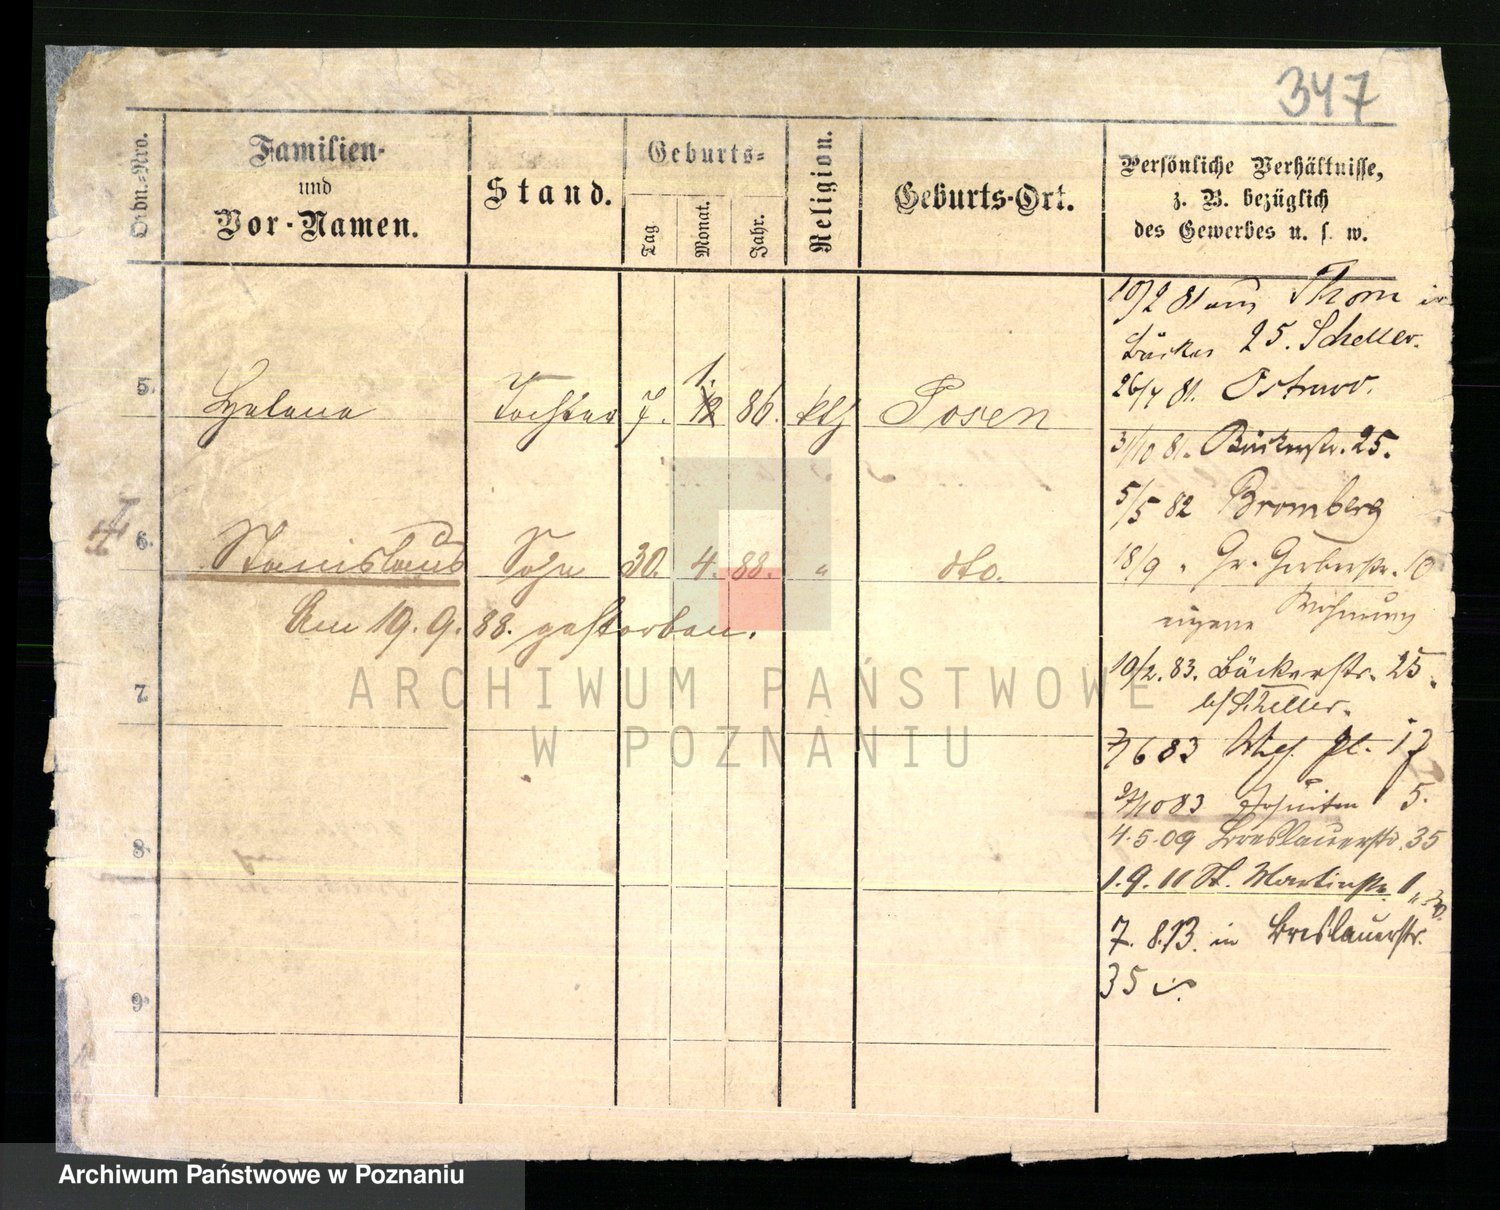 347
Ordn.-Nro.
Familien-
und
Vor-Namen.
Stand.
Geburts-
Tag
Monat.
Jahr.
Religion.
Geburts-Ort.
Persönliche Verhältnisse,
z. B. bezüglich
des Gewerbes u. s. w.
5. Helena Tochter 7. 1. 12 86. kth Posen
6. Stanislaus Sohn 30. 4. 88. " dto.
Am 19. 9. 88. gestorben.
7.
8.
9.
10/2 81 aus Thorn in
Bäcker 25. Scheller.
26/4 81. Ostrowo.
31/10 81. Bäckerstr. 25.
5/5 82 Bromberg
18/9 " Gr. Gerberstr. 10
eigene Wohnung
10/2. 83. Bäckerstr. 25.
b/ Scheller.
7/6 83 Pl. 17
10 83 Jesuiten 5.
4.5.09 Breslauerstr. 35
1.9.11 St. Martinstr. 1
7. 8.13. in Breslauerstr.
35
ARCHIWUM PAŃSTWOWE
W POZNANIU
Archiwum Państwowe w Poznaniu